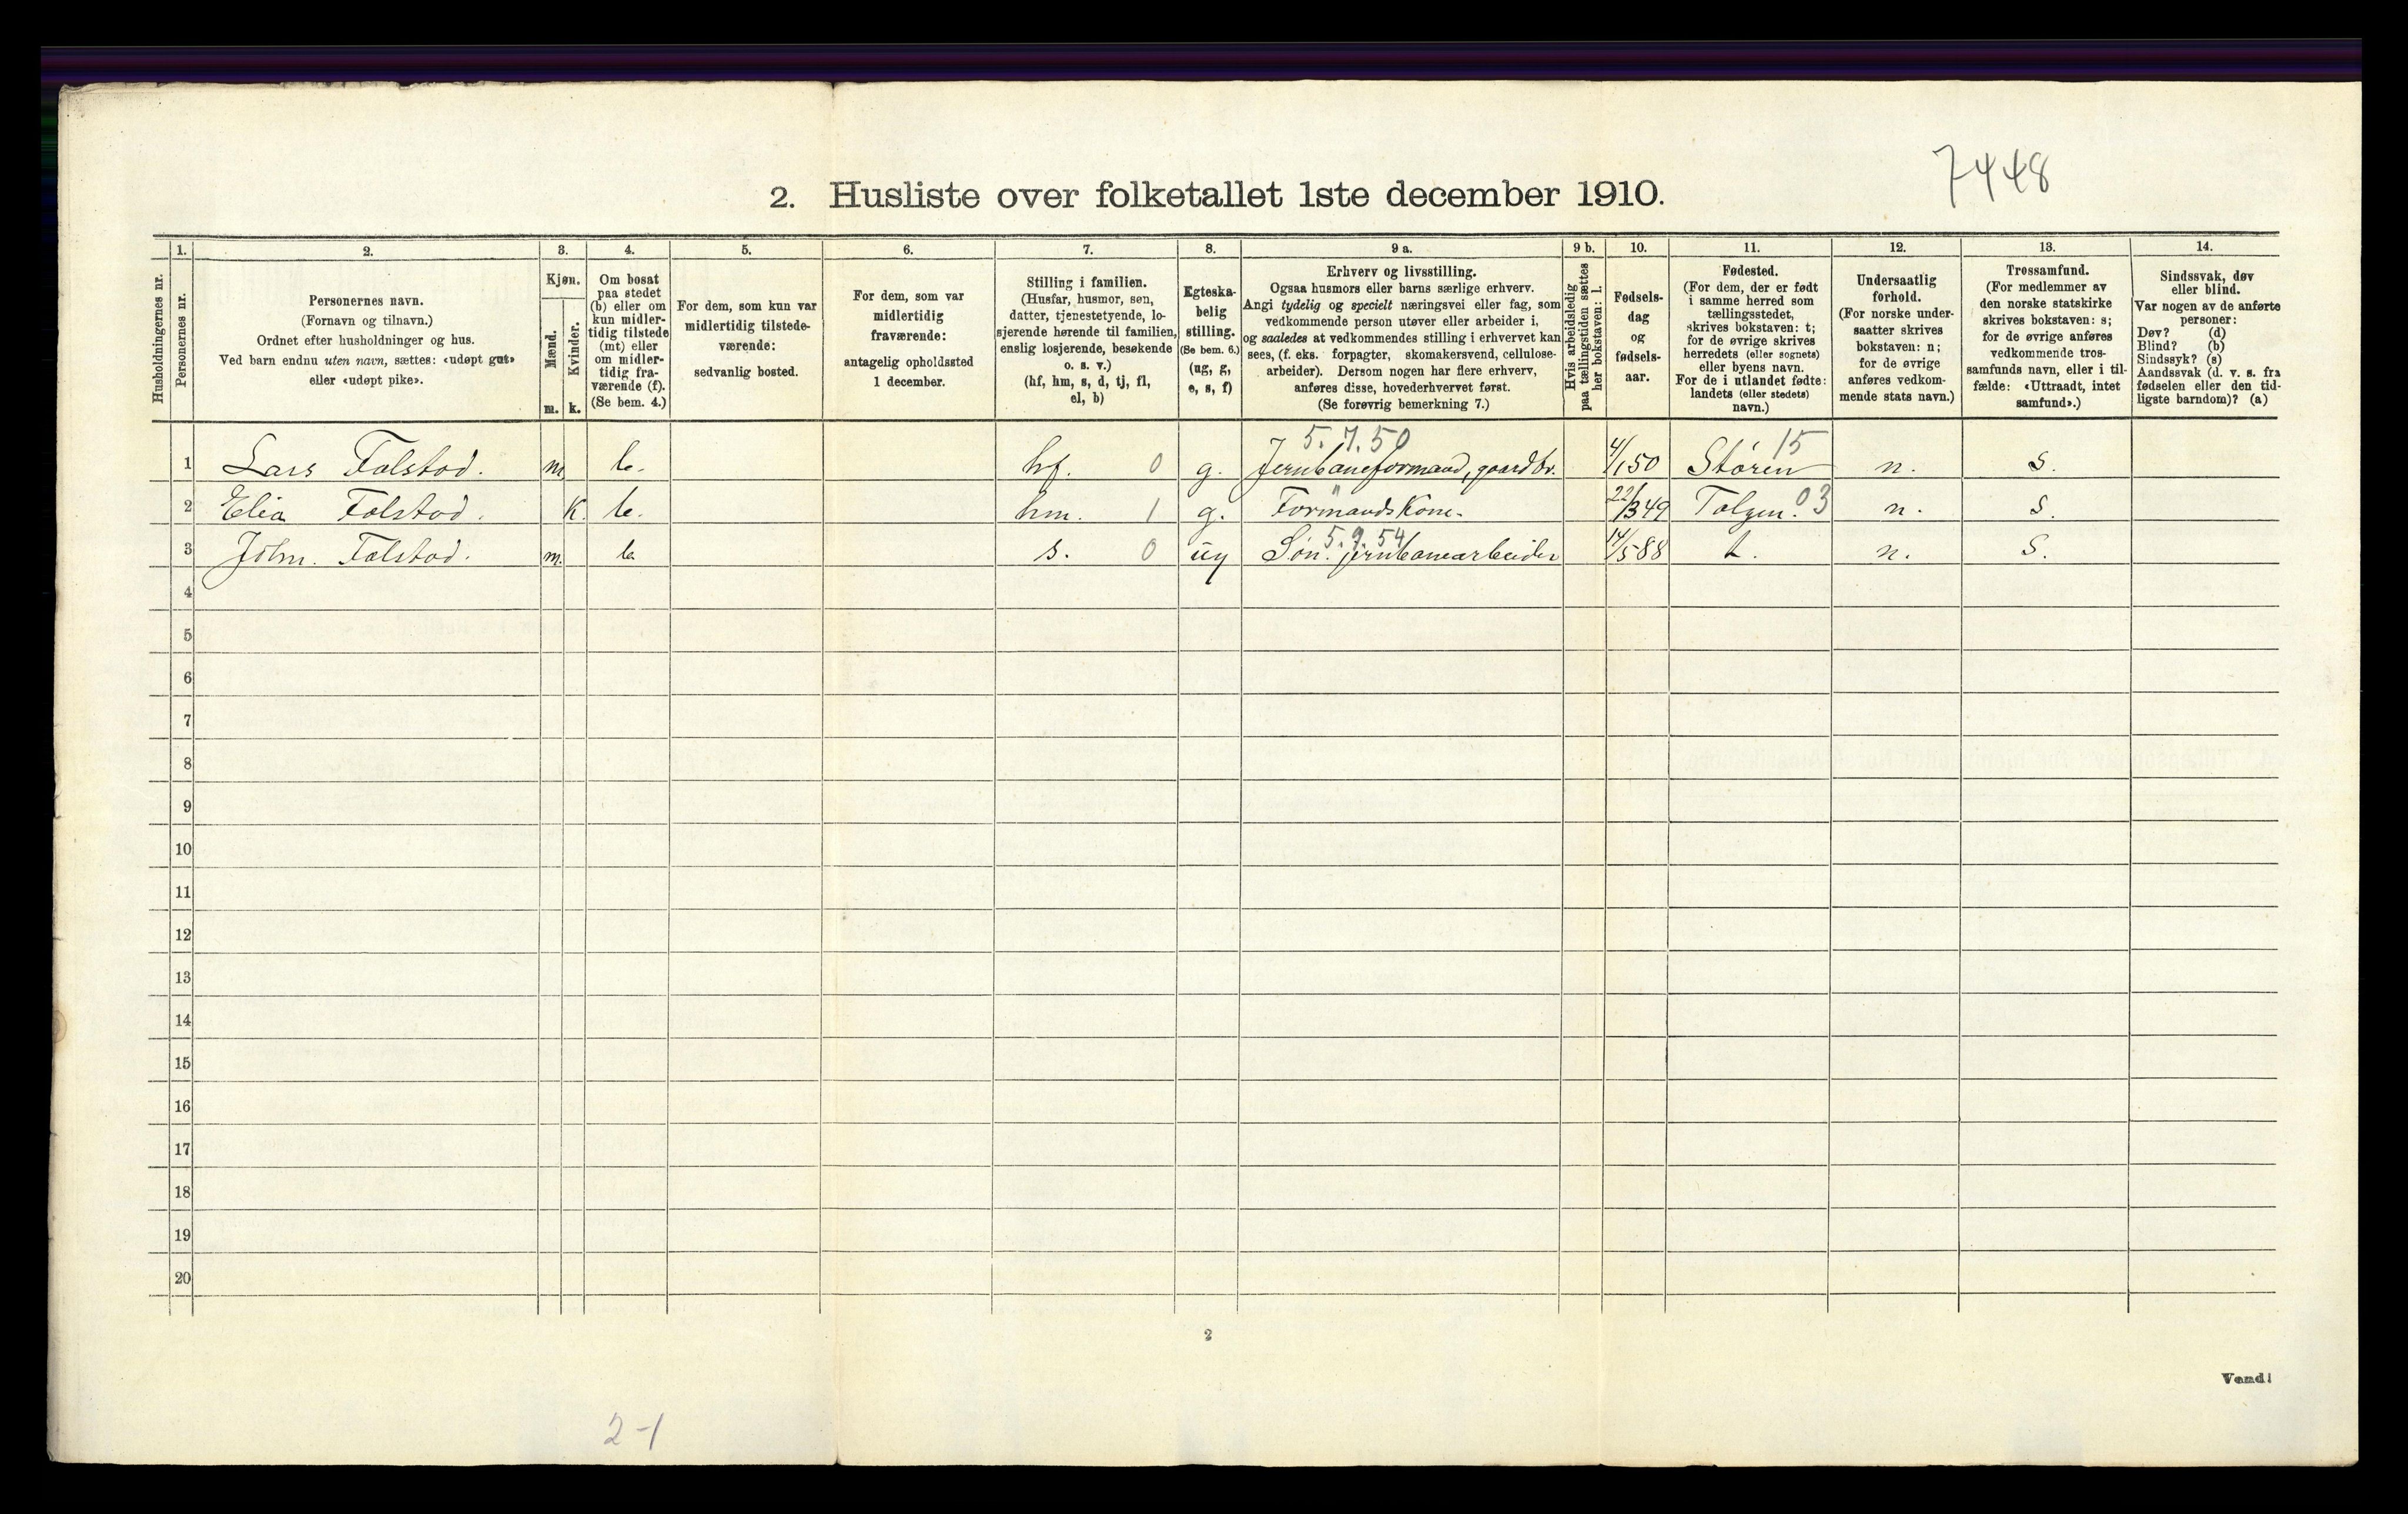 7448
2. Husliste over folketallet 1ste december 1910.
Husholdningernes nr.
1.
Personernes nr.
2.
Personernes navn.
(Fornavn og tilnavn.)
Ordnet efter husholdninger og hus.
Ved barn endnu uten navn, sættes: «udøpt gut»
eller «udøpt pike».
3.
Kjøn.
Mænd.
Kvinder.
m. k.
4.
Om bosat
paa stedet
(b) eller om
kun midler-
tidig tilstede
(mt) eller
om midler-
tidig fra-
værende (f).
(Se bem. 4.)
5.
For dem, som kun var
midlertidig tilstede-
værende:
sedvanlig bosted.
6.
For dem, som var
midlertidig
fraværende:
antagelig opholdssted
1 december.
7.
Stilling i familien.
(Husfar, husmor, søn,
datter, tjenestetyende, lo-
sjerende hørende til familien,
enslig losjerende, besøkende
o. s. v.)
(hf, hm, s, d, tj, fl,
el, b)
8.
Egteska-
belig
stilling.
(Se bem. 6.)
(ug, g,
e, s, f)
9 a.
Erhverv og livsstilling.
Ogsaa husmors eller barns særlige erhverv.
Angi tydelig og specielt næringsvei eller fag, som
vedkommende person utøver eller arbeider i,
og saaledes at vedkommendes stilling i erhvervet kan
sees, (f. eks. forpagter, skomakersvend, cellulose-
arbeider). Dersom nogen har flere erhverv,
anføres disse, hovederhvervet først.
(Se forøvrig bemerkning 7.)
9 b.
Hvis arbeidsledig
paa tællingstiden sættes
her bokstaven: l.
10.
Fødsels-
dag
og
fødsels-
aar.
11.
Fødested.
(For dem, der er født
i samme herred som
tællingsstedet,
skrives bokstaven: t;
for de øvrige skrives
herredets (eller sognets)
eller byens navn.
For de i utlandet fødte:
landets (eller stedets)
navn.)
12.
Undersaatlig
forhold.
(For norske under-
saatter skrives
bokstaven: n;
for de øvrige
anføres vedkom-
mende stats navn.)
13.
Trossamfund.
(For medlemmer av
den norske statskirke
skrives bokstaven: s;
for de øvrige anføres
vedkommende tros-
samfunds navn, eller i til-
fælde: «Uttraadt, intet
samfund».)
14.
Sindssvak, døv
eller blind.
Var nogen av de anførte
personer:
Døv? (d)
Blind? (b)
Sindssyk? (s)
Aandssvak (d. v. s. fra
fødselen eller den tid-
ligste barndom)? (a)
5.7.50 15
1 Lars Folstad. m b. hf. 0 g. Jernbaneformand, gaardbr. 4/1 50 Støren n. s.
2 Elia Folstad. k. b. hm. 1 g. Formands Kone. 22/3 49 Tolgen. 03 n. s.
5.9.54
3 John. Folstad. m. b s. 0 ug Søn. jernbanearbeider 14/5 88 t. n. s.
4
5
6
7
8
9
10
11
12
13
14
15
16
17
18
19
20
2
Vend!
2-1